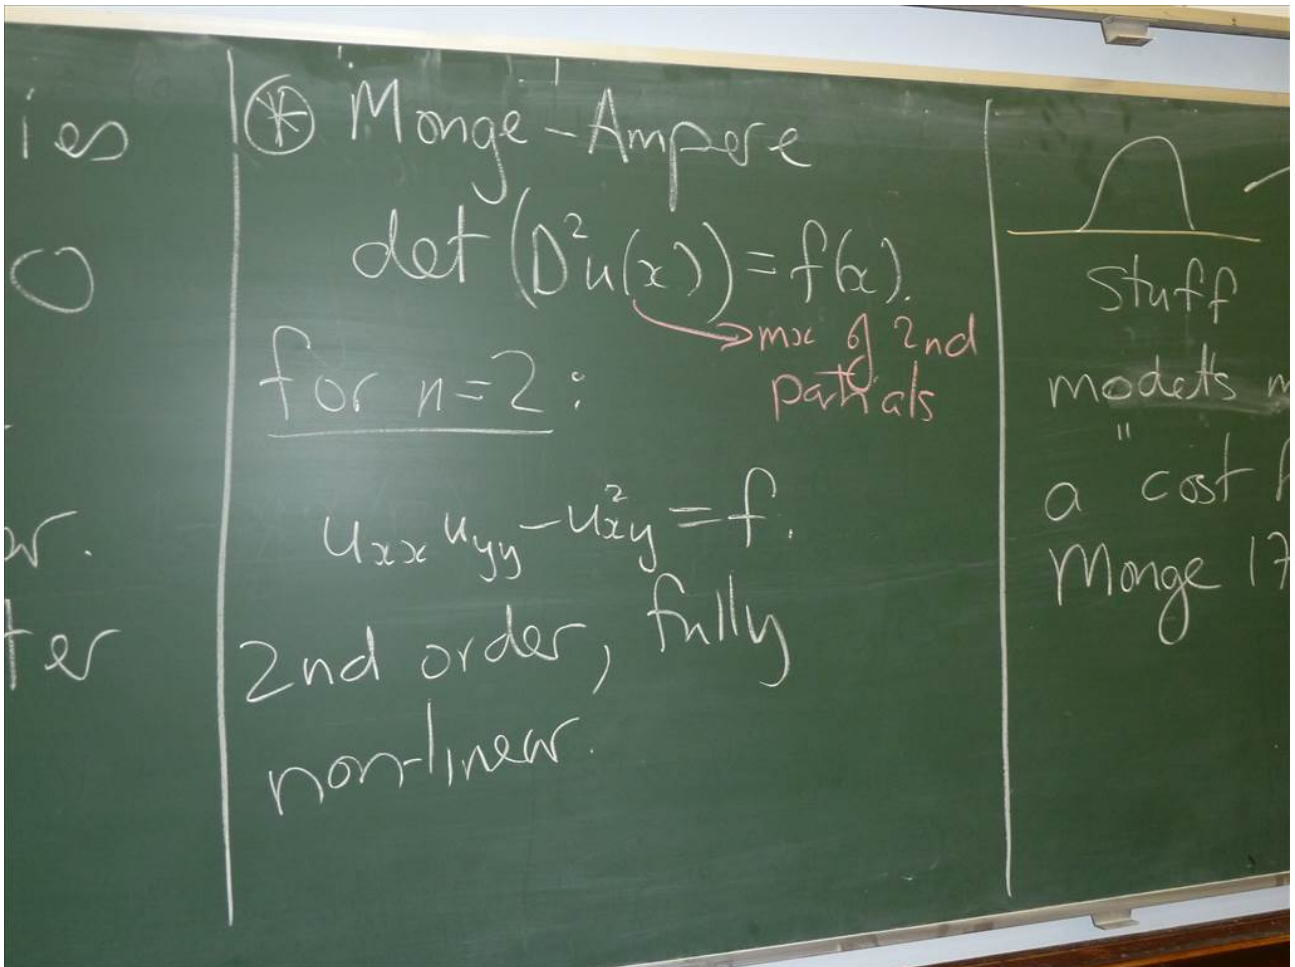 ies
O
ar.
ter
⊛ Monge-Ampere
det (D²u(x)) = f(x).
→ mx of 2nd
partials
for n=2:
u_xx u_yy - u²_xy = f.
2nd order, fully
non-linear.
Stuff
models m
" cost
a
Monge 17